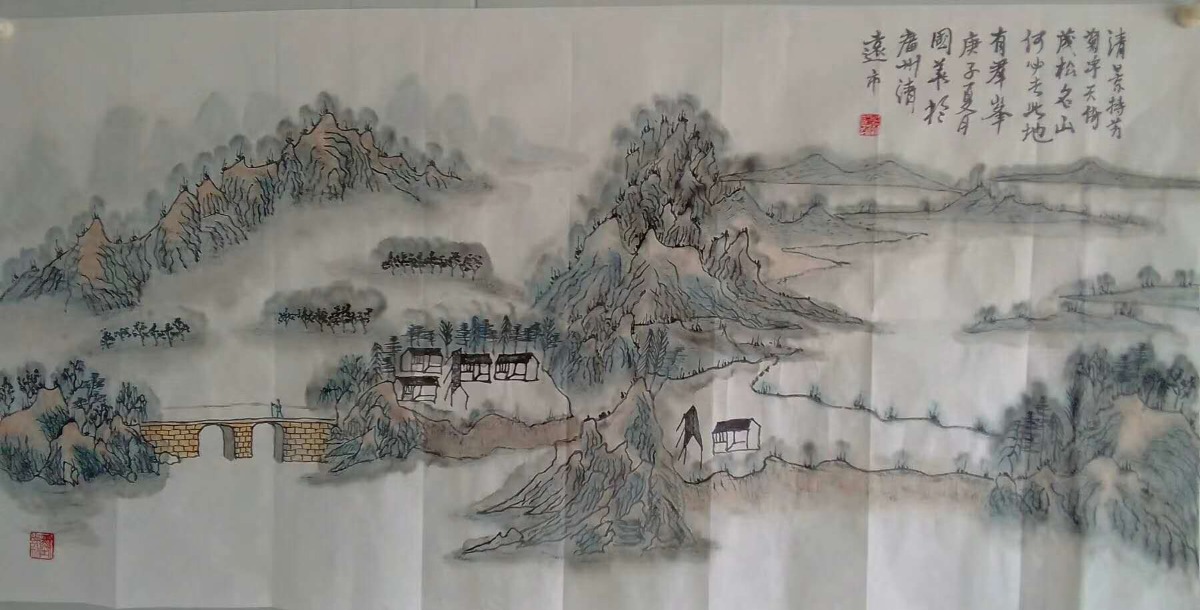 清景持芳
菊 天倚
茂松名山
何必去此地
有群峯
庚子夏月
國華於
廣州清
遠市